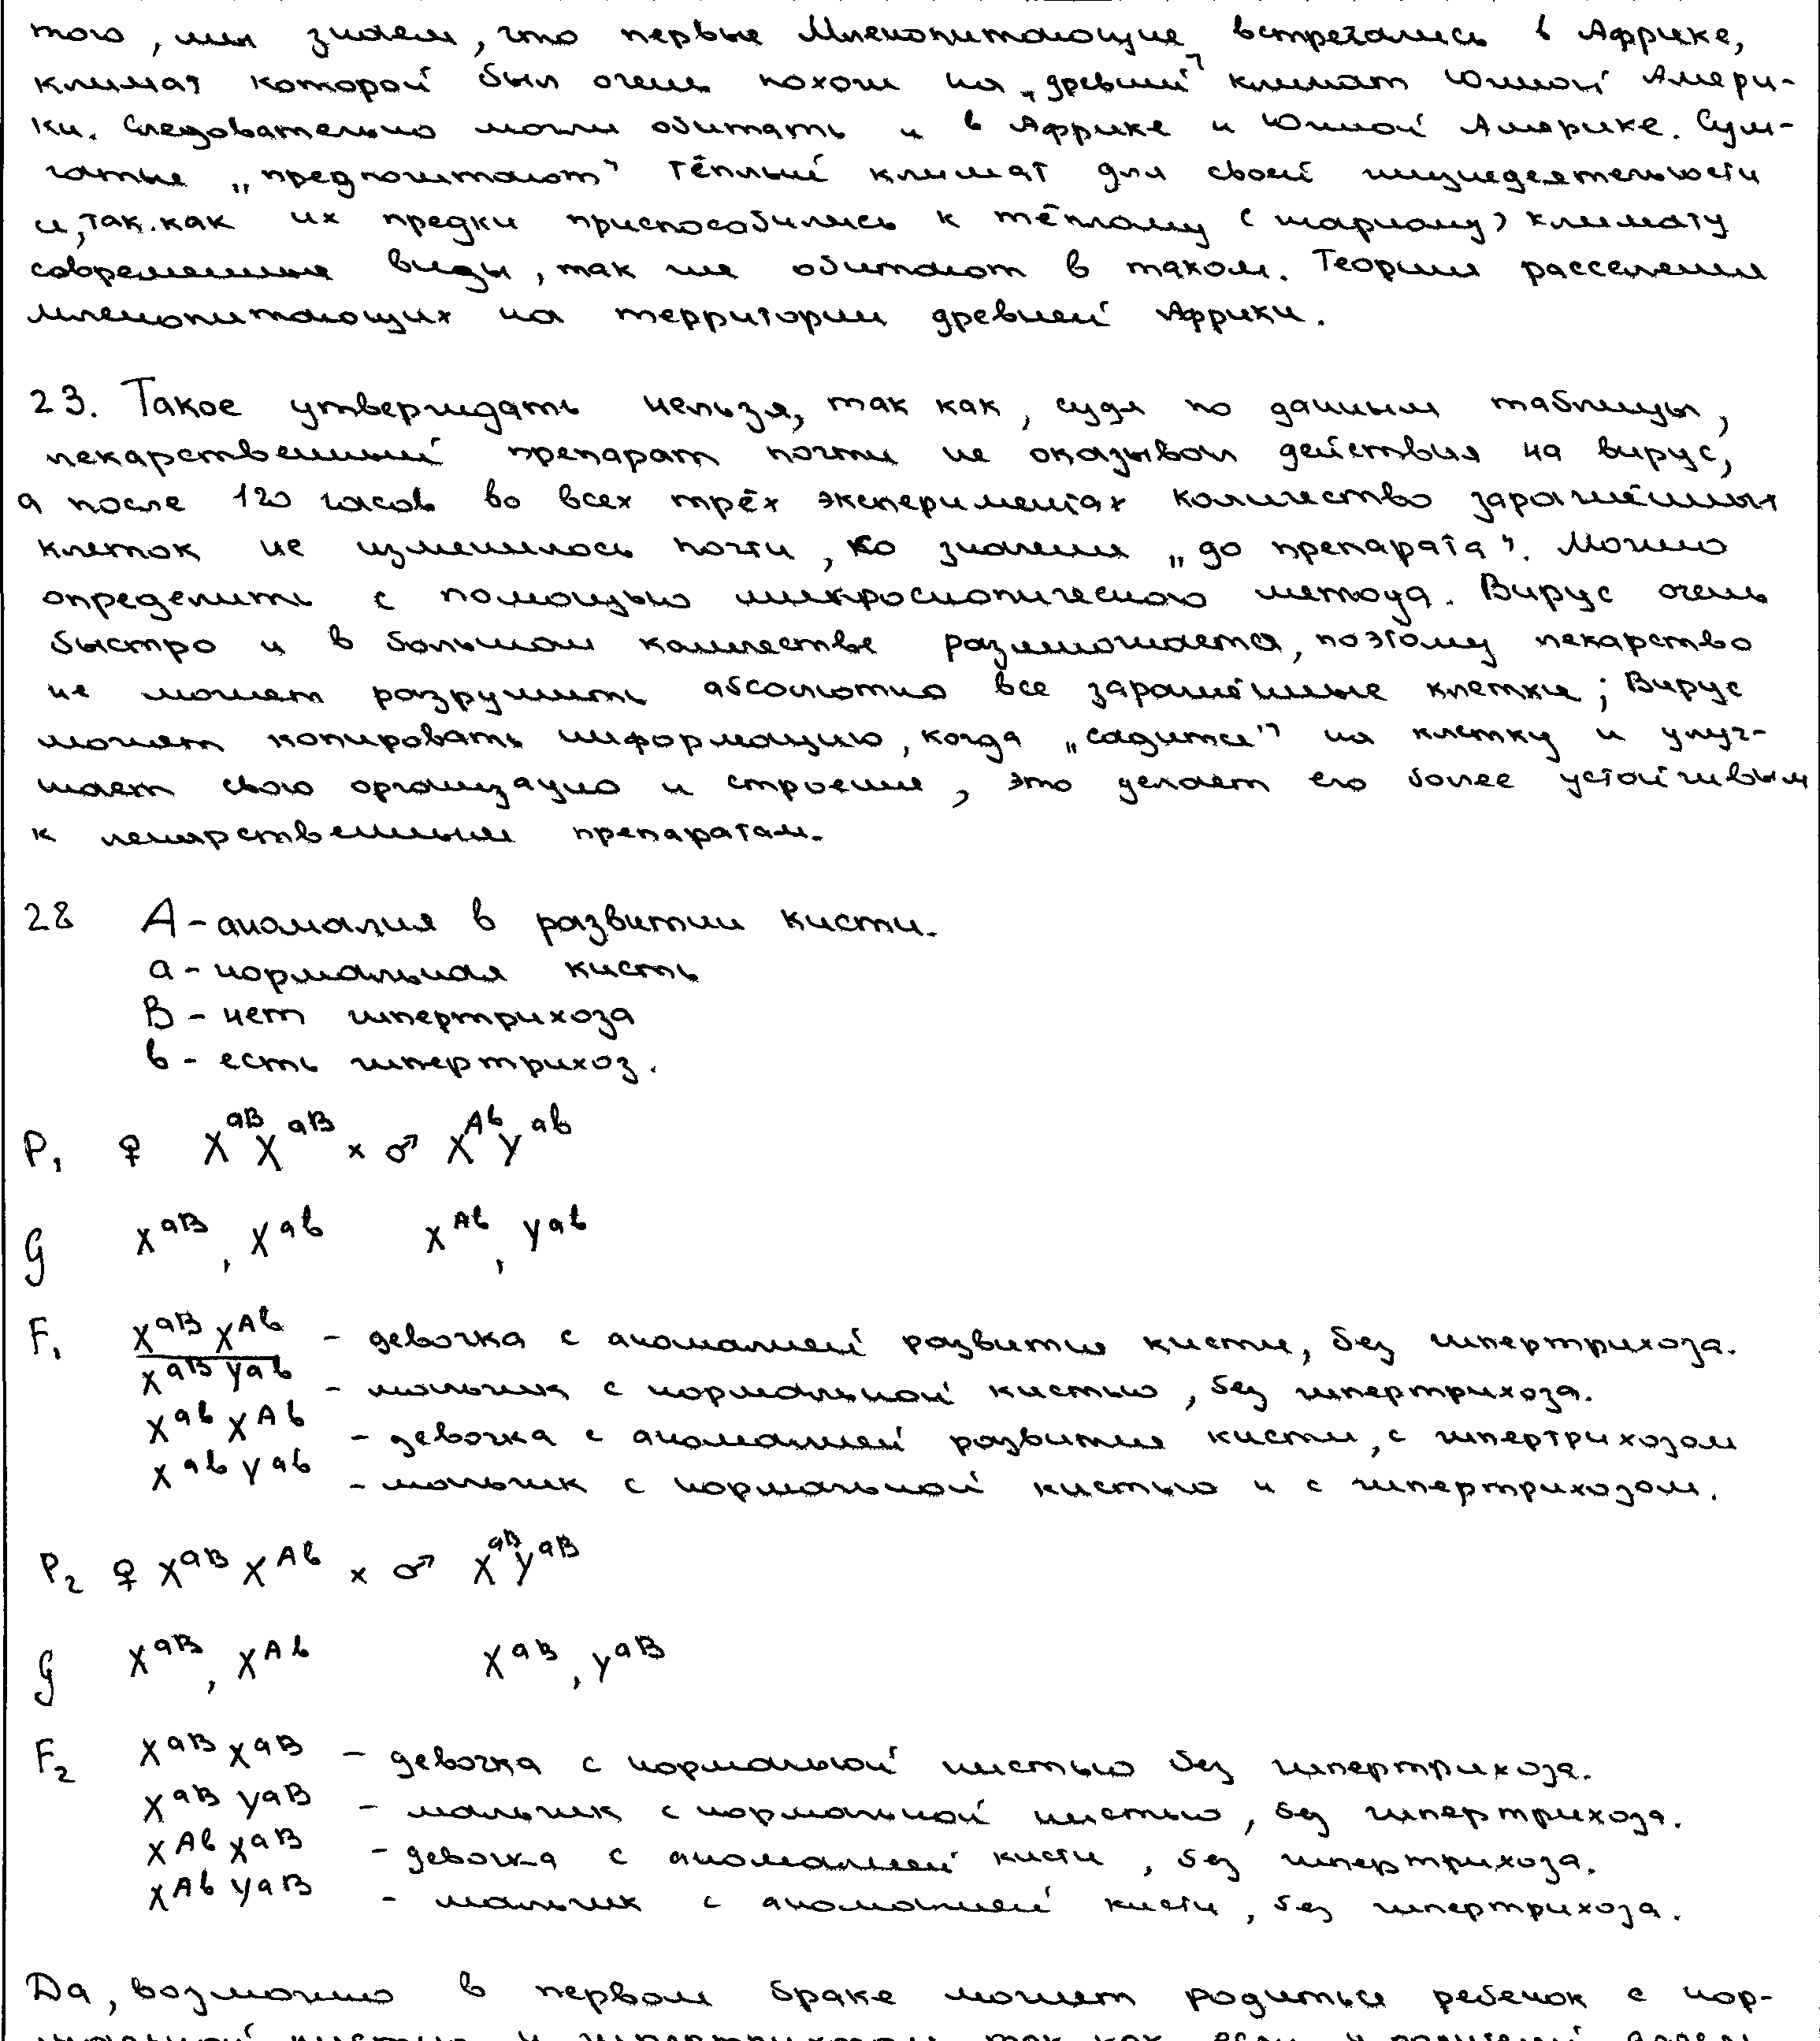 того, мы знаем, что первые Млекопитающие встречались в Африке,
климат которой был очень похож на „древний" климат Южной Амери-
ки. Следовательно могли обитать и в Африке и Южной Америке. Сум-
чатые „предпочитают" тёплый климат для своей жизнедеятельности
и, так как их предки приспособились к тёплому (жаркому) климату
современные виды, так же обитают в таком. Теория расселения
млекопитающих на территории древней Африки.
23. Такое утверждать нельзя, так как, судя по данным таблицы,
лекарственный препарат почти не оказывал действия на вирус,
а после 120 часов во всех трёх экспериментах количество заражённых
клеток не изменилось почти, ко значения „до препарата". Можно
определить с помощью микроскопического метода. Вирус очень
быстро и в большом количестве размножается, поэтому лекарство
не может разрушить абсолютно все заражённые клетки; Вирус
может копировать информацию, когда „садится" на клетку и улуч-
шает свою организацию и строение, это делает его более устойчивым
к лекарственным препаратам.
28 A - аномалия в развитии кисти.
a - нормальная кисть
B - нет гипертрихоза
b - есть гипертрихоз.
P₁ ♀ XᵃᴮXᵃᴮ × ♂ XᴬᵇYᵃᵇ
G Xᵃᴮ, Xᵃᵇ Xᴬᵇ, Yᵃᵇ
F₁ XᵃᴮXᴬᵇ - девочка с аномалией развития кисти, без гипертрихоза.
XᵃᴮYᵃᵇ - мальчик с нормальной кистью, без гипертрихоза.
XᵃᵇXᴬᵇ - девочка с аномалией развития кисти, с гипертрихозом
XᵃᵇYᵃᵇ - мальчик с нормальной кистью и с гипертрихозом.
P₂ ♀ XᵃᴮXᴬᵇ × ♂ XᵃᴮYᵃᴮ
G Xᵃᴮ, Xᴬᵇ Xᵃᴮ, Yᵃᴮ
F₂ XᵃᴮXᵃᴮ - девочка с нормальной кистью без гипертрихоза.
XᵃᴮYᵃᴮ - мальчик с нормальной кистью, без гипертрихоза.
XᴬᵇXᵃᴮ - девочка с аномалией кисти, без гипертрихоза.
XᴬᵇYᵃᴮ - мальчик с аномалией кисти, без гипертрихоза.
Да, возможно в первом браке может родиться ребёнок с нор-